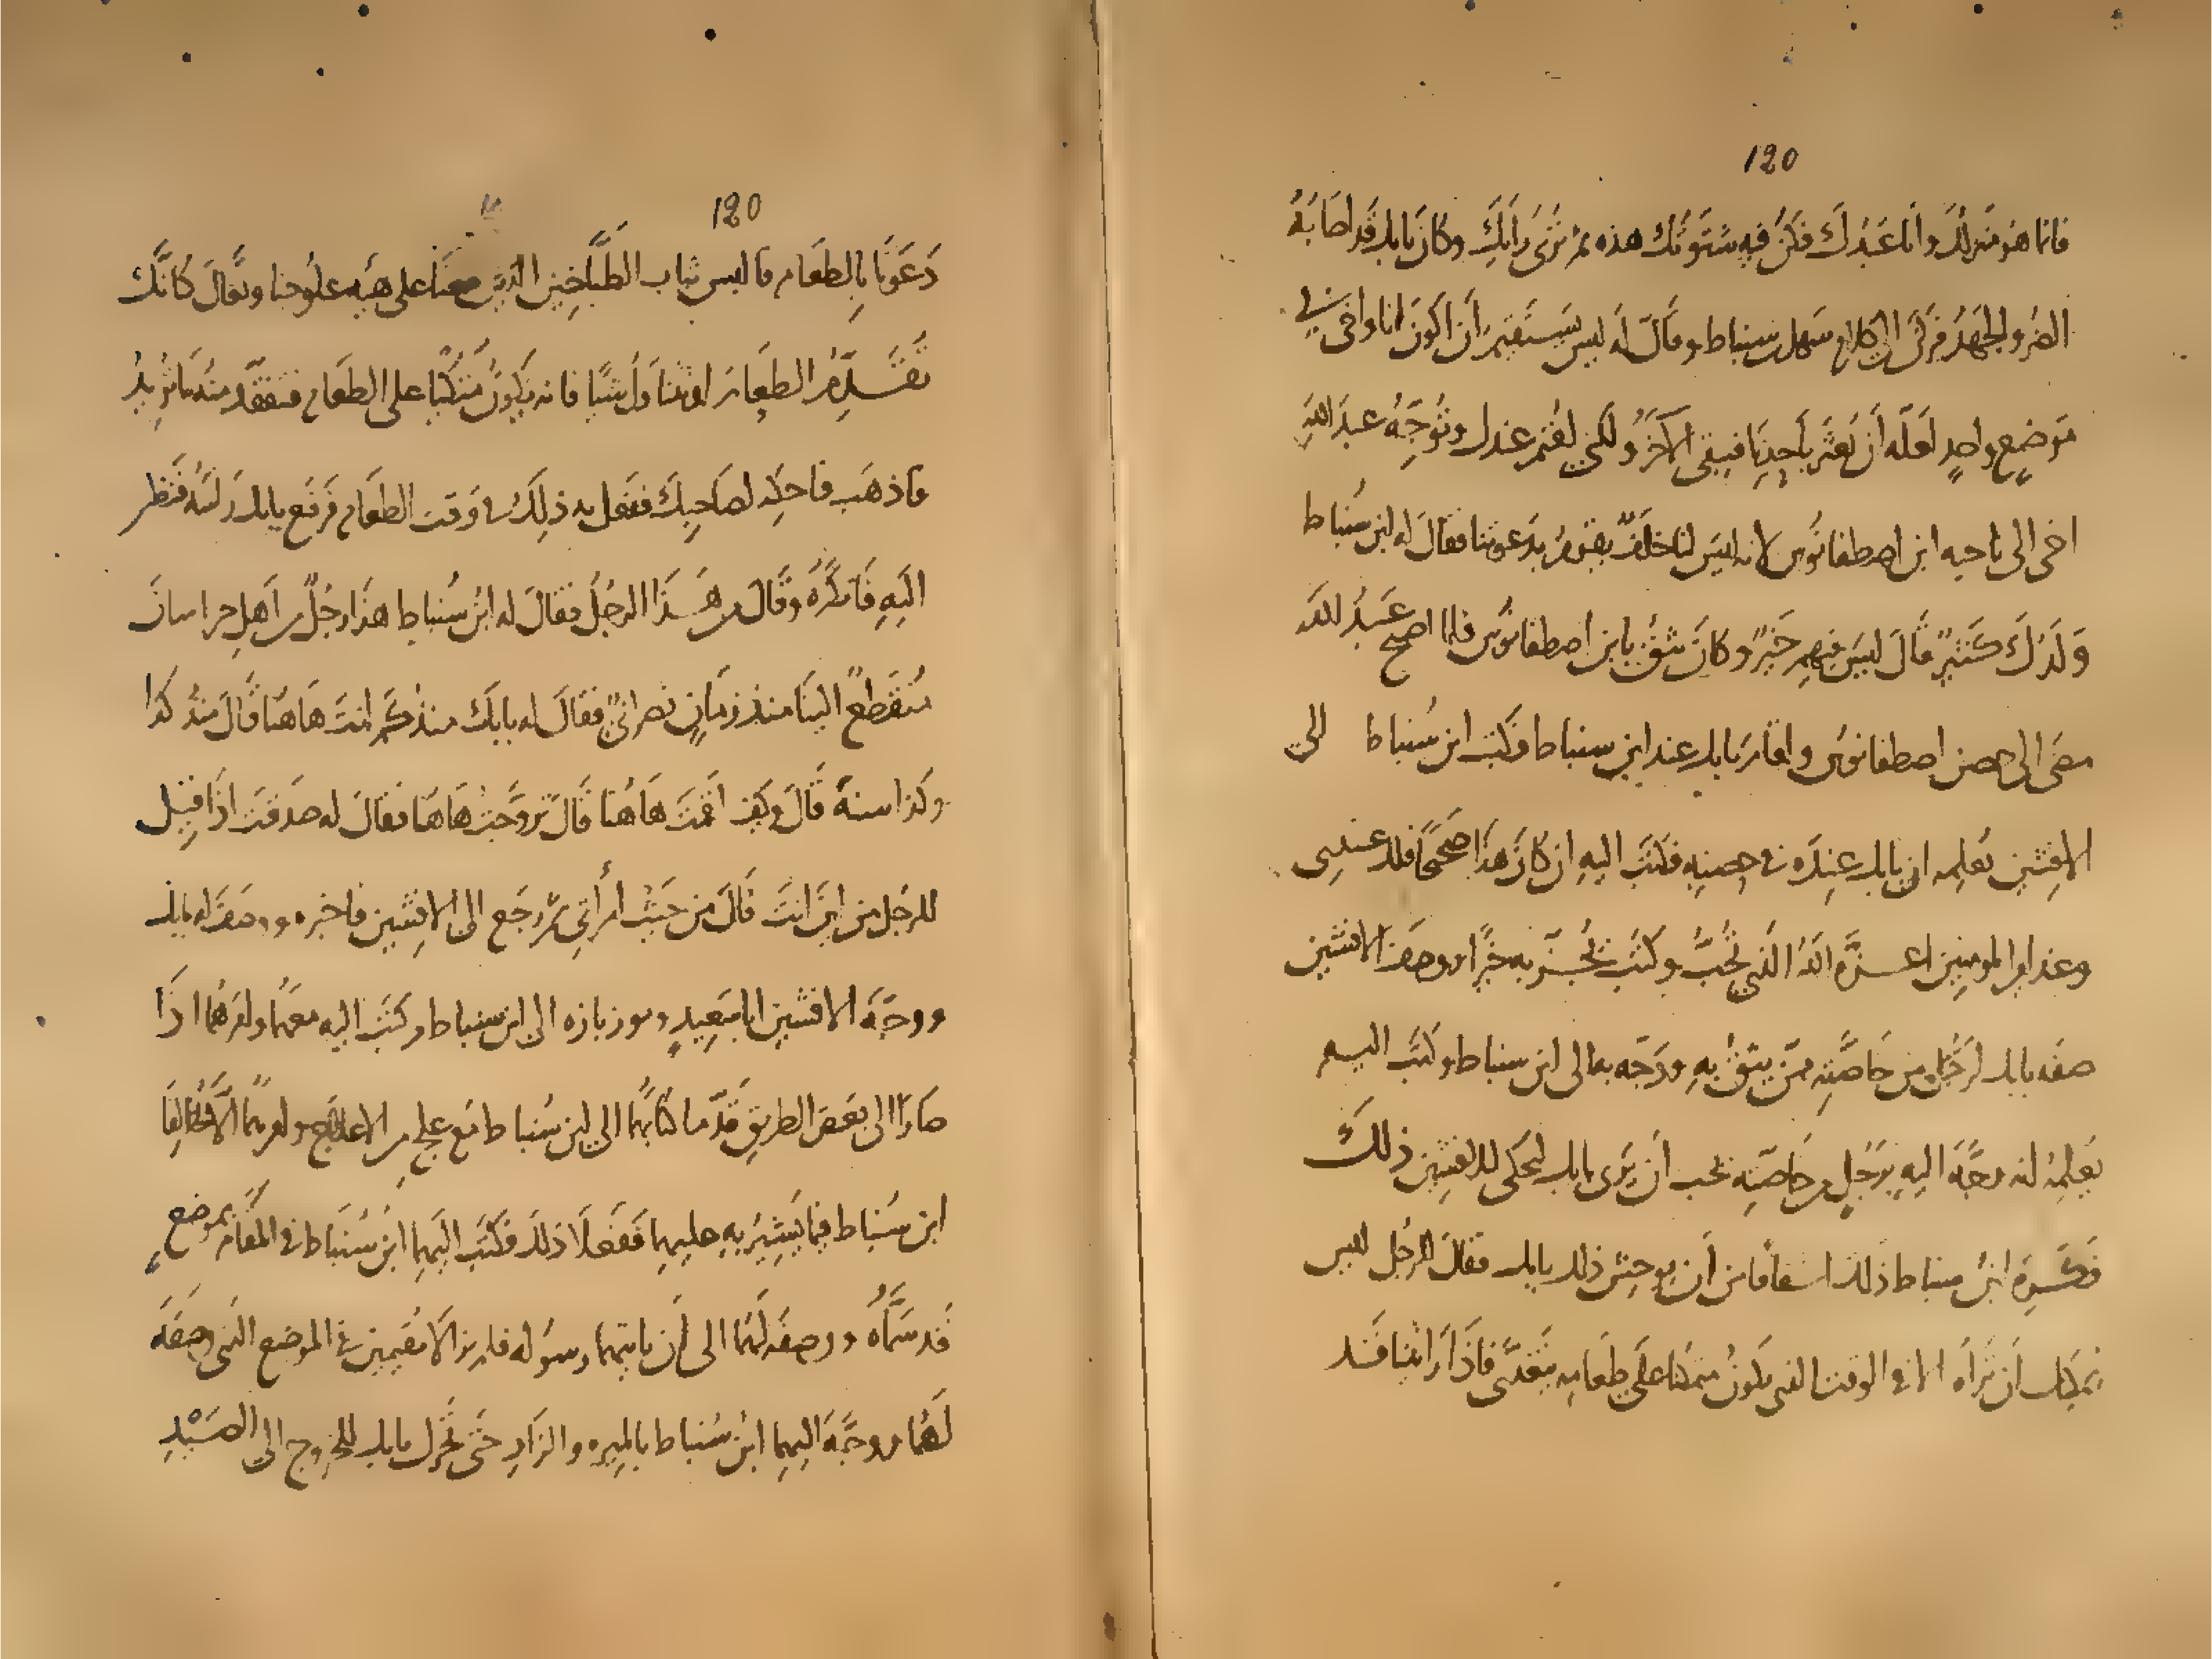 120
فانما هو منزلك وانا عَبْدُكَ فكن فيه شتوتك هذه ثم ترى رأيك وكان بابك قد اصابه
الضر والجهد فركن الى كلام سهل بن سنباط وقال له ليس يستقيم أن اكون انا واخى فى
موضع واحدٍ لعله أن يعثر بأحدِنا فيبقى الآخر ولكن اقيم عندك وتوجه عبد الله
اخى الى ناحيه ابن اصطفانوس لانه ليس لنا خلف يقوم بدعوتنا فقال له ابن سنباط
وَلَدُكَ كثير قال ليس فيهم خير وكان يثق بابن اصطفانوس فلما اصبح عبد الله
مضى الى حصن اصطفانوس واقام بابك عند ابن سنباط وكتب ابن سنباط الى
الافشين يعلمه ان بابك عنده فى حصنه فكتب اليه ان كان هذا صحيحًا فلك عندى
وعند امير المومنين اعزه الله الذى تحب وكتب يجزيه خيرًا ووصف الافشين
صفه بابك لرجل من خاصته ممن يثق به ووجه به الى ابن سنباط وكتب اليه
يعلمه انه وجه اليه برجل من خاصته يحب أن يرى بابك ليحكى للافشين ذلك
فكره ابن سنباط ذلك اشفاقا من أن يوحش ذلك بابك فقال للرجل ليس
يمكنك أن تراه الا فى الوقت الذى يكون متكئا على طعامه يتغدى فاذا رايتنا قد
120
دَعَوْنا بالطعام فالبس ثياب الطبّاخين الذين معنا على هيه علوجنا وتعال كأنك
تقدم الطعام او تناول شيًا فانه يكون متكئًا على الطعام فتفقد منه ما تريد
فاذهب فاحكه لصاحبك ففعل به ذلك فى وقت الطعام فرفع بابك رأسه فنظر
اليه فانكره وقال من هذا الرجل فقال له ابن سنباط هذا رجل من اهل خراسان
منقطع الينا منذ زمان نصرانى فقال له بابك منذ كم انت هاهنا قال منذ كذا
وكذا سنة قال وكيف اقمت هاهنا قال تزوجت هاهنا فقال له صدقت اذا قيل
للرجل من اين انت قال من حيث امرأتى ثم رجع الى الافشين فاخبره ووصف له بابك
ووجه الافشين ابا سعيد وبوزباره الى ابن سنباط وكتب اليه معهما وامرهما اذا
صارا الى بعض الطريق قدّما كتابهما الى ابن سنباط مع علج من الاعلاج وامرهما الا يخالفا
ابن سنباط فيما يشير به عليهما ففعلا ذلك فكتب اليهما ابن سنباط فى المقام بموضع
قد سمّاه ووصفه لهما الى أن ياتيهما رسوله فلم يزالا مقيمين فى الموضع الذى وصفه
لهما ووجه اليهما ابن سنباط بالميره والزاد حتى تحرك بابك للخروج الى الصيد